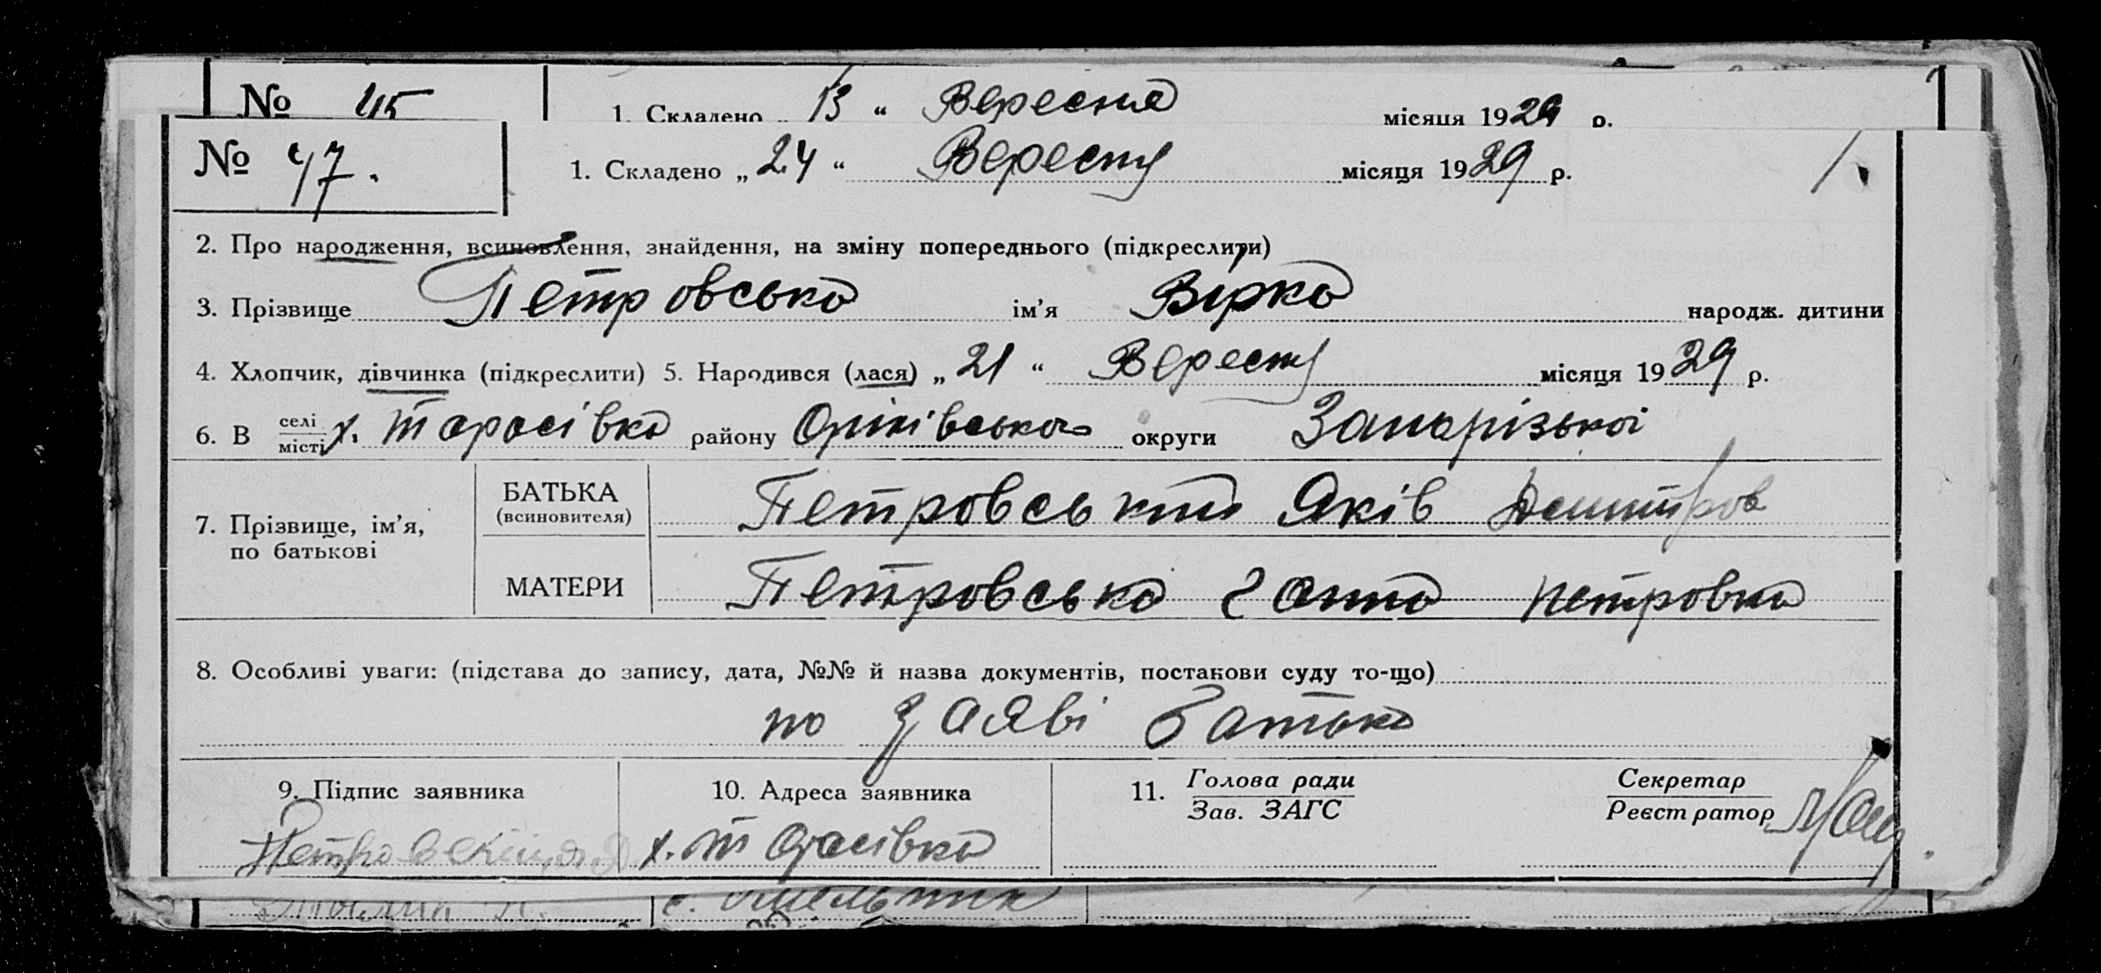 № 45 1. Складено „ 13 “ Вересня місяця 1929 р.
№ 47. 1. Складено „ 24 “ Вересня місяця 1929 р.
2. Про народження, всиновлення, знайдення, на зміну попереднього (підкреслити)
3. Прізвище Петровська ім’я Вірка народж. дитини
4. Хлопчик, дівчинка (підкреслити) 5. Народився (лася) „ 21 “ Вересня місяця 1929 р.
6. В селі/місті х. Тарасівка району Оріхівського округи Запорізької
7. Прізвище, ім’я, по батькові
БАТЬКА (всиновителя) Петровський Яків Дмитров
МАТЕРИ Петровська Ганна Петровна
8. Особливі уваги: (підстава до запису, дата, №№ й назва документів, постакови суду то-що)
по заяві батька
9. Підпис заявника 10. Адреса заявника 11. Голова ради Секретар
Зав. ЗАГС Реєстратор
х. Тарасівка